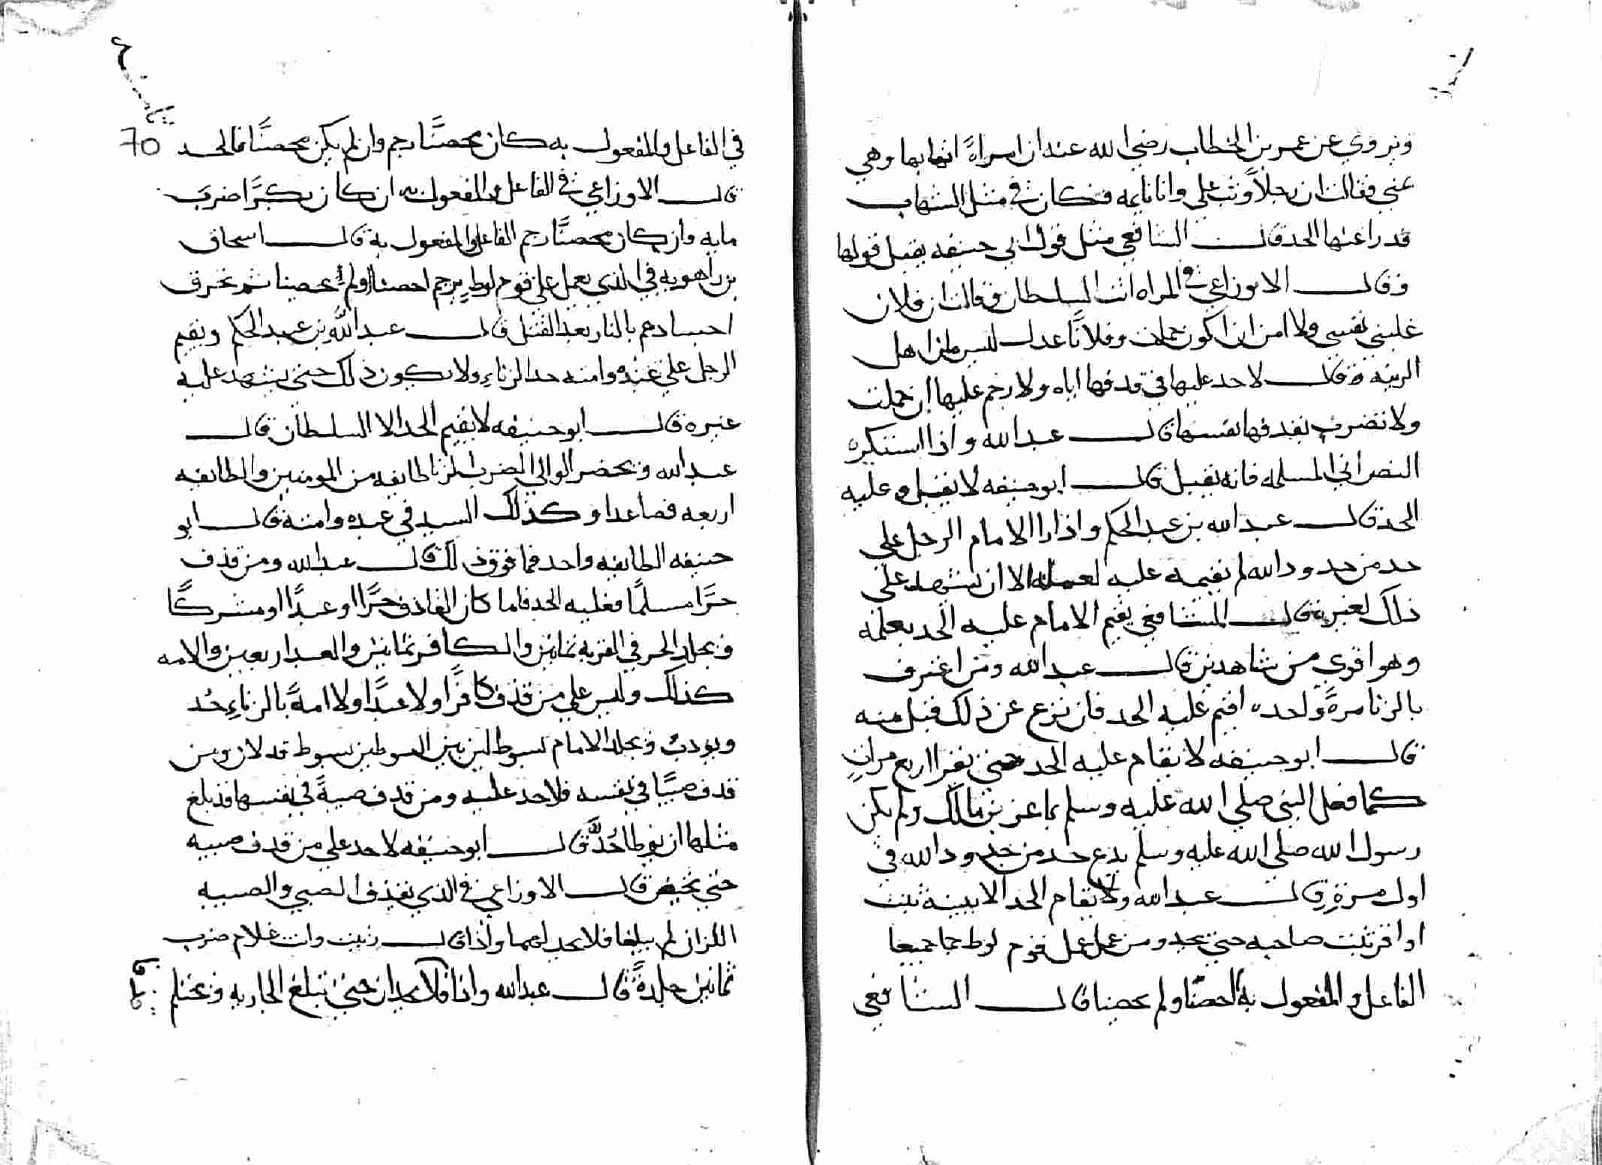 وتروي عن عمر بن الخطاب رضي الله عنه ان امراة اتهابها وهي
غني فقالت ان رجلا وثب علي وانا نايمه فكان في مثل الشهاب
قد راعنها الحد قال الشافعي مثل قول ابي حنيفه يقبل قولها
وقال الاوزاعي في المراه اتت السلطان وقالت ان فلان
غلبني نفسي ولا امن ان اكون حملت وفلانا عدل ليس من اهل
الريبه قال لا حد عليها في قدفها اياه ولا رجم عليها ان حملت
ولا تضرب بقدفها نفسها قال عبد الله واذا استكره
النصراني المسلمه فانه يقتل قال ابو حنيفه لا يقتل وعليه
الحد قال عبد الله بن عبد الحكم واذا راا الامام الرجل على
حد من حدود الله لم يقيمه عليه لعلمه الا ان يشهد على
ذلك لغيره قال الشافعي يقيم الامام عليه الحد بعلمه
وهو اقوى من شاهدين قال عبد الله ومن اعترف
بالزنا مرة واحده اقيم عليه الحد فان نزع عن ذلك قبل منه
قال ابو حنيفه لا يقام عليه الحد حتى يقر اربع مرات
كما فعل النبي صلى الله عليه وسلم بماعز بن مالك ولم يكن
رسول الله صلى الله عليه وسلم يدع حد من حدود الله في
اول مرة قال عبد الله ولا يقام الحد الا ببينة تثبت
او اقر تثبت صاحبه حتى يحد ومن عمل عمل قوم لوط رجما جميعا
الفاعل والمفعول به احصنا ولم يحصنا قال الشافعي
70
في الفاعل والمفعول به كان محصنا رجم وان لم يكن محصنا فالحد
قال الاوزاعي في الفاعل والمفعول به ان كان بكرا ضرب
مايه وان كان محصنا رجم الفاعل والمفعول به قال اسحاق
بن راهويه في الذي يعمل عمل قوم لوط يرجم احصنا او لم يحصنا ثم تحرق
اجسادهم بالنار بعد القتل قال عبد الله بن عبد الحكم ويقيم
الرجل على عبده وامته حد الزناء ولا يكون ذلك حتى يشهد عليه
غيره قال ابو حنيفه لا يقيم الحد الا السلطان قال
عبد الله ويحضر الوالي الضرب للزنا طايفه من المومنين والطايفه
اربعه فصاعدا وكذلك السيد في عبده وامته قال ابو
حنيفه الطايفه واحد فما فوق ذلك قال عبد الله ومن قذف
حرا مسلما فعليه الحد قاما كان القاذف حرا او عبدا او مشركا
ويجلد الحر في الفريه ثمانين والكافر ثمانين والعبد اربعين والامه
كذلك وليس على من قذف كافرا ولا عبدا ولا امة بالزناء حد
ويودب ويجلد الامام بسوط لين بين السوطين بسوط قد لان وبين
قدف صبيا في نفسه فلا حد عليه ومن قدف صبية في نفسها قد بلغ
مثلها ان يوطا حد قال ابو حنيفه لا حد على من قدف صبيه
حتى تحيض قال الاوزاعي في الذي يقذف الصبي والصبيه
اللذان لم يبلغا فلا يحد لهما واذا قال زنيت وانت غلام ضرب
ثمانين جلدة قال عبد الله وانا فلا يحد ان حتى تبلغ الجاريه ويحتلم